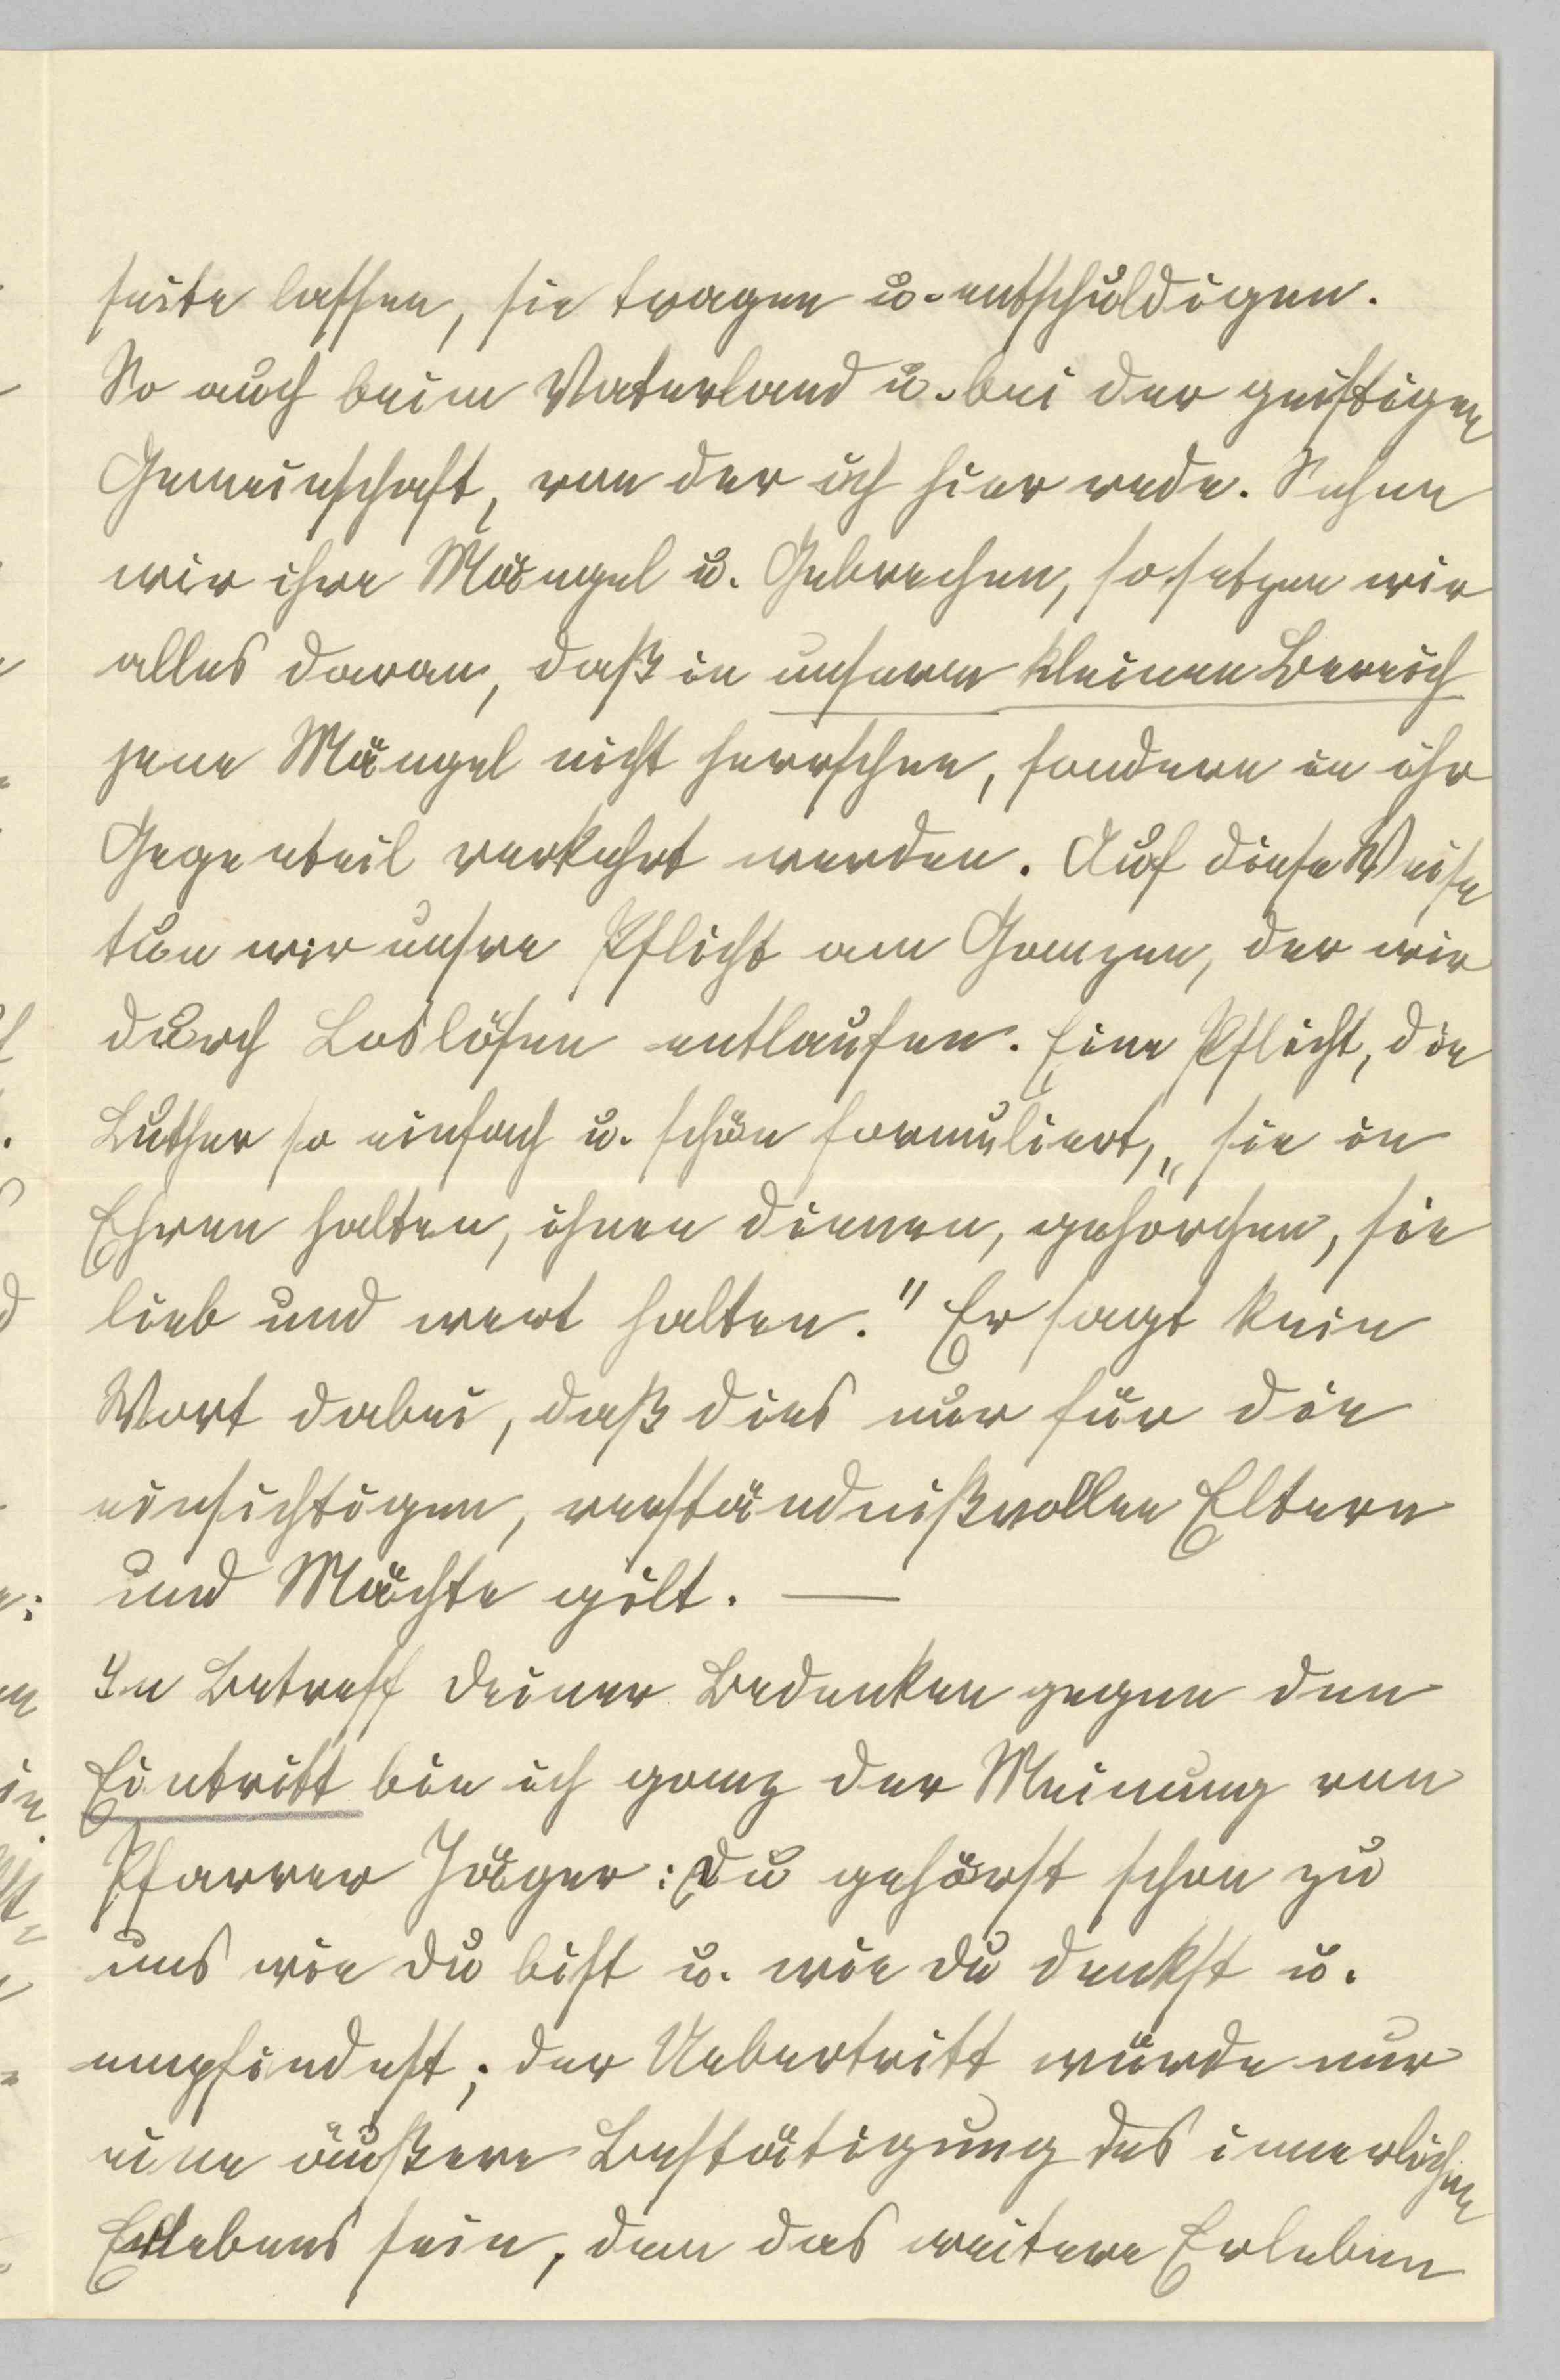 seite lassen, sie tragen u. entschuldigen.
So auch beim Vaterland u. bei der geistigen
Gemeinschaft, von der ich hier rede. Sehen
wir ihre Mängel u. Gebrechen, so setzen wir
alles daran, daß in unserm kleinen Bereich
jene Mängel nicht herrschen, sondern in ihr
Gegenteil verkehrt werden. Auf diese Weise
tun wir unsre Pflicht am Ganzen, der wir
durch Loslösen entlaufen. Eine Pflicht, die
Luther so einfach u. schön formuliert, „sie in
Ehren halten, ihnen dienen, gehorchen, sie
lieb und wert halten." Er sagt kein
Wort dabei, daß dies nur für die
einsichtigen, verständnißvollen Eltern
und Mächte gilt. —
In Betreff deiner Bedenken gegen den
Eintritt bin ich ganz der Meinung von
Pfarrer Jäger: Du gehörst schon zu
uns wie du bist u. wie du denkst u.
empfindest; der Uebertritt würde nur
eine äußere Bestätigung des innerlichen
Erlebens sein, dem das weitere Erleben